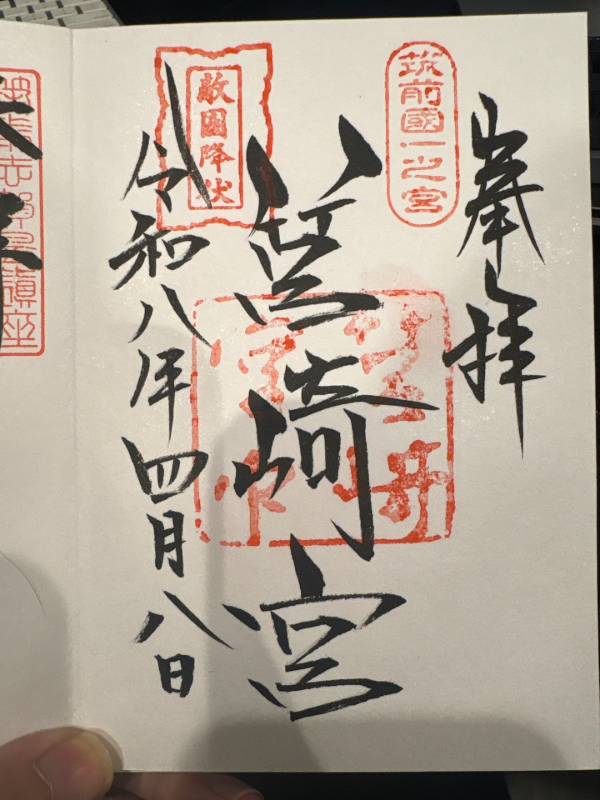 奉拝
筑前國一之宮
筥崎宮
敵國降伏
令和八年四月八日
鎮座